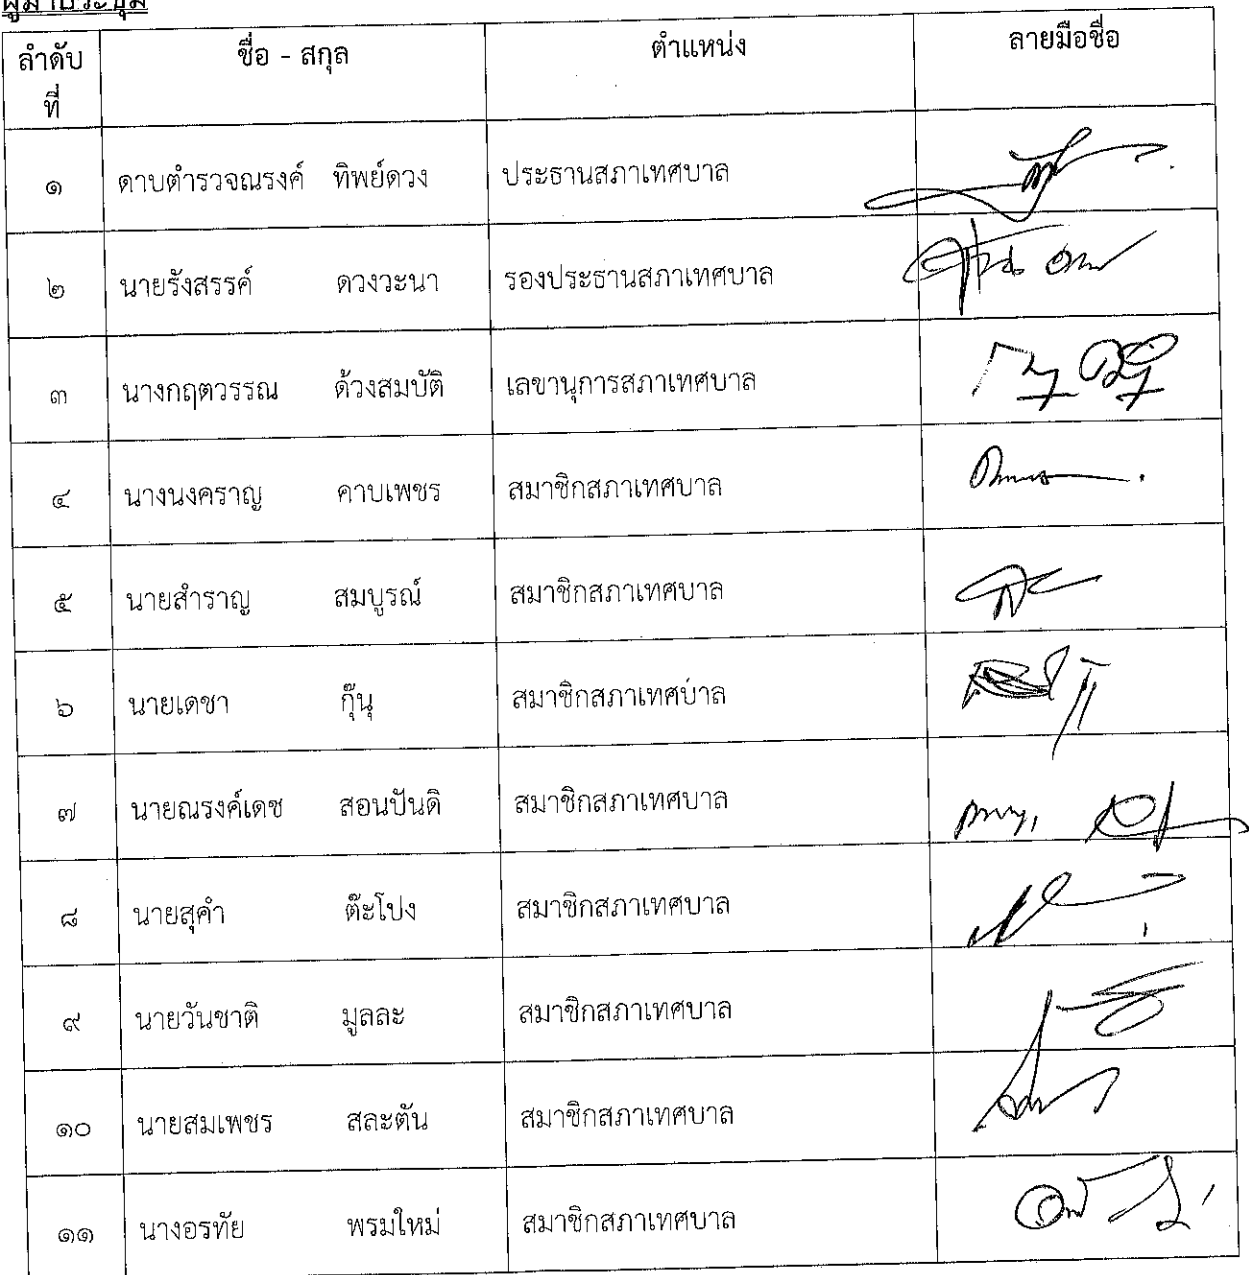 ผู้มาประชุม
ลำดับที่ ชื่อ - สกุล ตำแหน่ง ลายมือชื่อ
๑ ดาบตำรวจณรงค์ ทิพย์ดวง ประธานสภาเทศบาล
๒ นายรังสรรค์ ดวงวะนา รองประธานสภาเทศบาล
๓ นางกฤตวรรณ ด้วงสมบัติ เลขานุการสภาเทศบาล
๔ นางนงคราญ คาบเพชร สมาชิกสภาเทศบาล
๕ นายสำราญ สมบูรณ์ สมาชิกสภาเทศบาล
๖ นายเดชา กุ๊นุ สมาชิกสภาเทศบาล
๗ นายณรงค์เดช สอนปันดิ สมาชิกสภาเทศบาล
๘ นายสุคำ ต๊ะโปง สมาชิกสภาเทศบาล
๙ นายวันชาติ มูลละ สมาชิกสภาเทศบาล
๑๐ นายสมเพชร สละตัน สมาชิกสภาเทศบาล
๑๑ นางอรทัย พรมใหม่ สมาชิกสภาเทศบาล